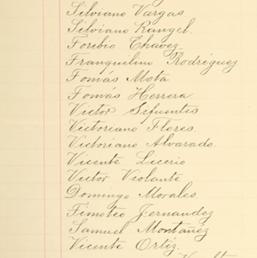 Silviano Vargas
Silviano Rangel.
Toribio Chavez
Franquilino Rodriguez
Tomás Mota
Tomás Herrera
Victor Sifuentis
Victoriano Flores
Victoriano Alvarado.
Vicente Lucerio
Victor Violante
Domingo Morales.
Timoteo Jernandez
Samuel Montañez
Vicente Ortiz.